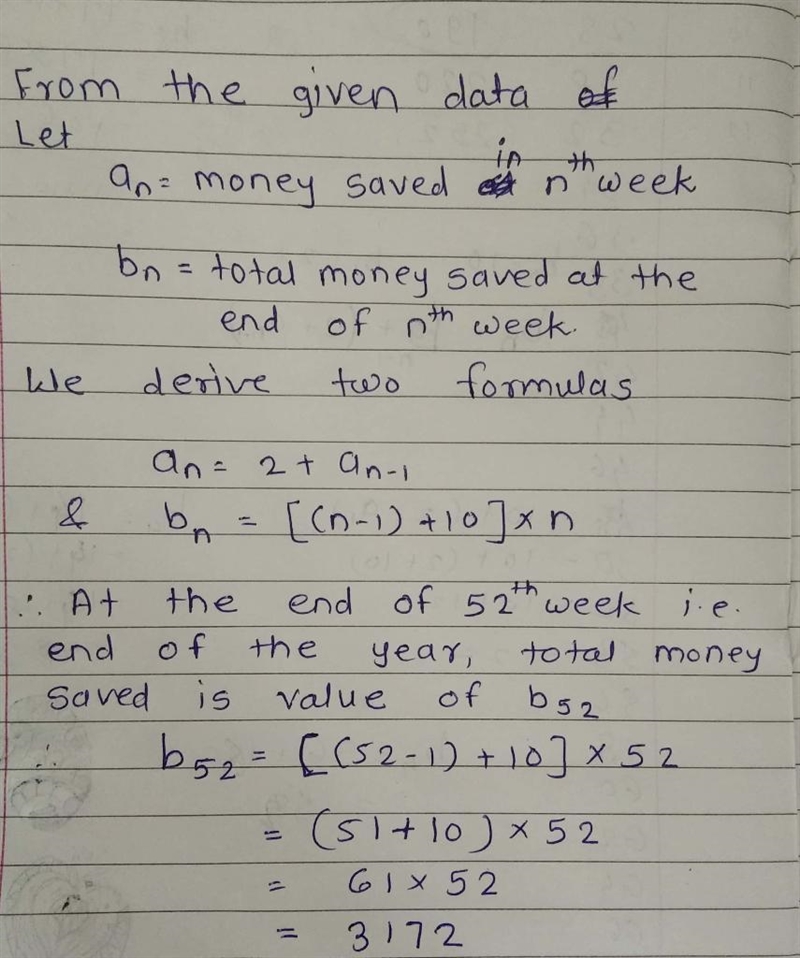 From the given data
Let
aₙ = money saved in nᵗʰ week
bₙ = total money saved at the
end of nᵗʰ week.
We derive two formulas
aₙ = 2 + aₙ₋₁
& bₙ = [(n-1) +10] × n
∴ At the end of 52ᵗʰ week i.e.
end of the year, total money
saved is value of b₅₂
∴ b₅₂ = [(52-1) + 10] × 52
= (51+10) × 52
= 61 × 52
= 3172